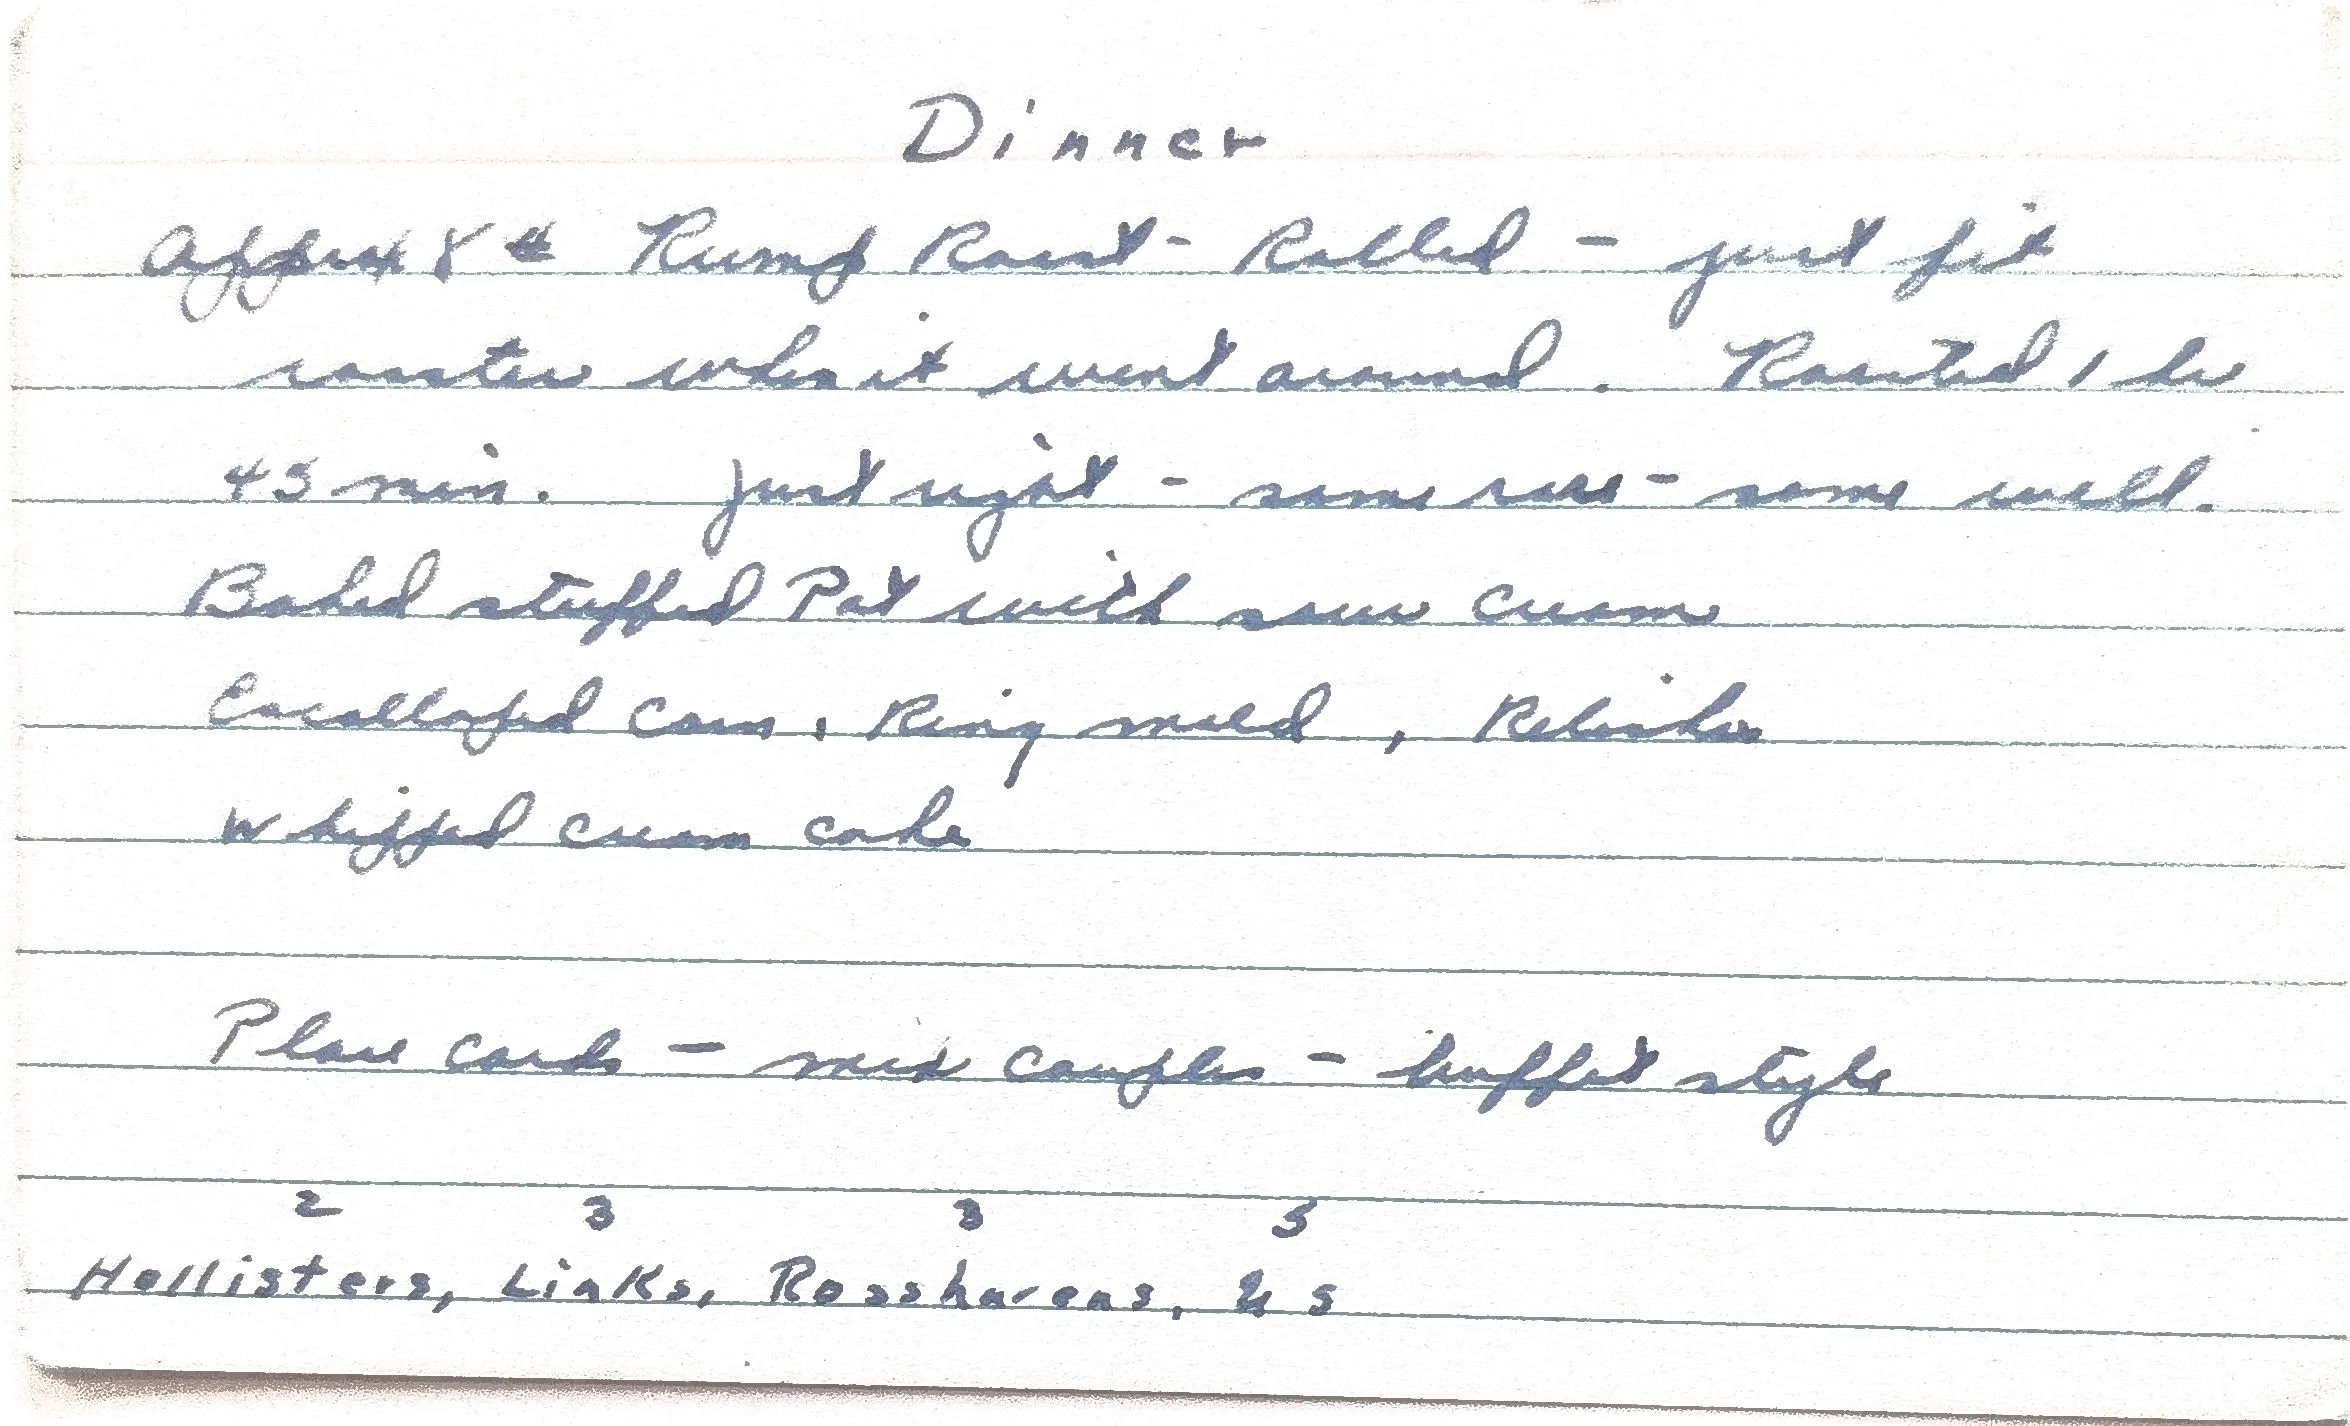 Dinner
Approx 8 # Rump Roast - Rolled - just fit
roaster when it went around. Roasted 1 hr
45 min. Just right - some rare - some well.
Baked stuffed Pot with sour cream
Escalloped Corn, Ring mold, Relishes
Whipped cream cake
Place cards - mix couples - buffet style
2 3 3 5
Hollisters, Links, Rosshavens, Us